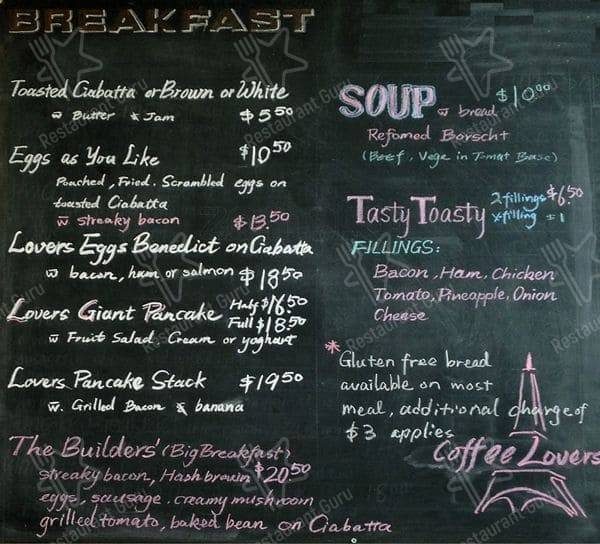 BREAKFAST
Toasted Ciabatta or Brown or White
w Butter & Jam $5.50
Eggs as You Like $10.50
Poached, Fried. Scrambled eggs on
toasted Ciabatta
w streaky bacon $13.50
Lovers Eggs Benedict on Ciabatta
w bacon, ham or salmon $18.50
Lovers Giant Pancake Half $16.50
Full $18.50
w Fruit Salad Cream or yoghurt
Lovers Pancake Stack $19.50
w. Grilled Bacon & banana
The Builders' (Big Breakfast)
streaky bacon, Hash brown $20.50
eggs, sausage. creamy mushroom
grilled tomato, baked bean on Ciabatta
SOUP w bread $10.00
Refomed Borscht
(Beef, Vege in Tomat Base)
Tasty Toasty 2 fillings $6.50
x filling $1
FILLINGS:
Bacon, Ham, Chicken
Tomato, Pineapple, Onion
Cheese
*Gluten free bread
available on most
meal, additional charge of
$3 applies
Coffee Lovers
Restaurant Guru